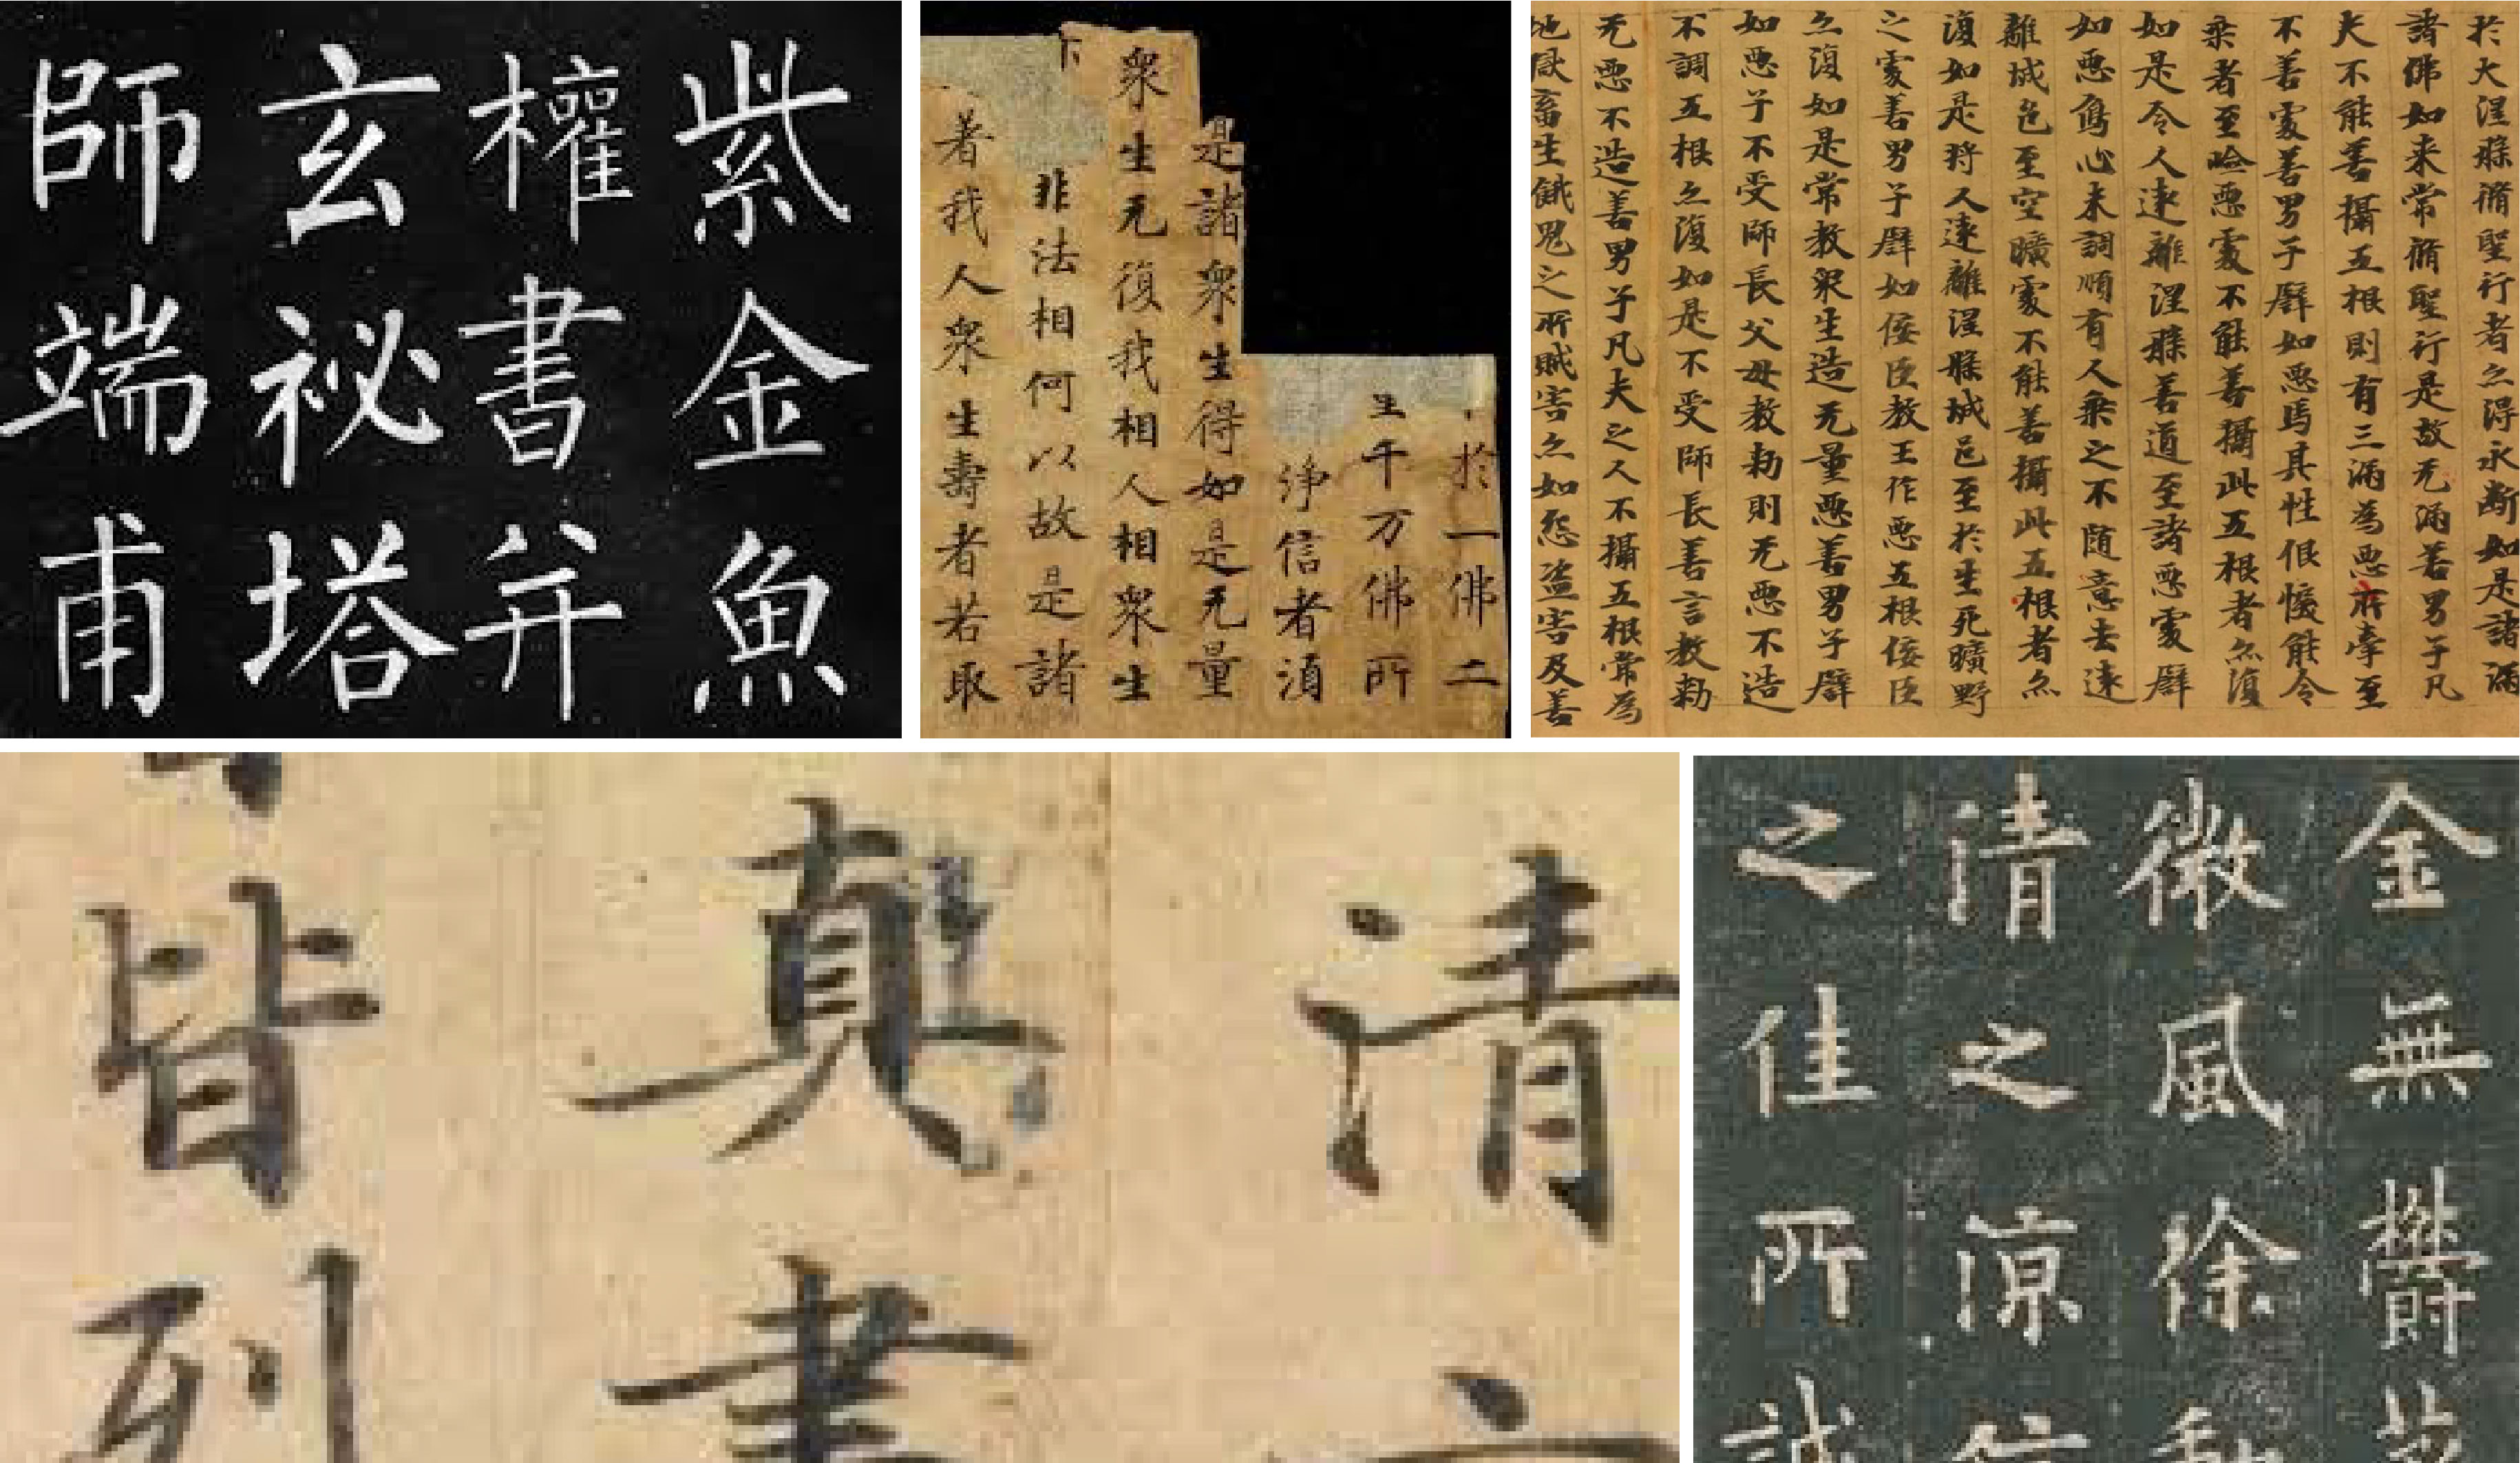 紫金魚
權書并
玄祕塔
師端甫
於一佛二
千万佛所
淨信者湏
是諸衆生得如是无量
衆生无復我相人相衆生
非法相何以故是諸
著我人衆生壽者若取
於大涅槃脩聖行者亦得永斷如是諸漏
諸佛如来常脩聖行是故无漏善男子凡
夫不能善攝五根則有三漏為惡所牽至
不善處善男子譬如惡馬其性佷悷能令
乘者至嶮惡處不能善攝此五根者亦復
如是令人遠離涅槃善道至諸惡處譬
如惡象心未調順有人乘之不随意去遠
離城邑至空曠處不能善攝此五根者亦
復如是将人遠離涅槃城邑至於生死曠野
之處善男子譬如佞臣教王作惡五根佞臣
亦復如是常教衆生造无量惡善男子譬
如惡子不受師長父母教勑則无惡不造
不調五根亦復如是不受師長善言教勑
无惡不造善男子凡夫之人不攝五根常為
地獄畜生餓鬼之所賊害亦如怨盗害及善
清
真
皆列
金無欝
微風徐
清之涼
之佳所誠